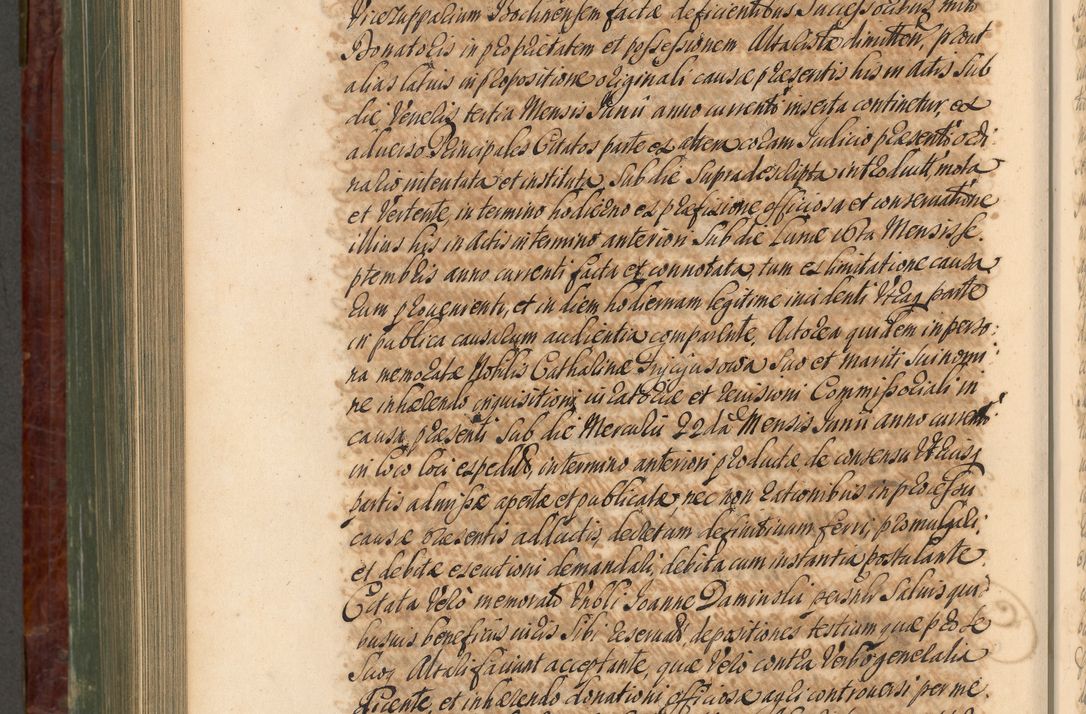 Vicesupparium Bochnensem factæ deficientibus Successoribus mitti
Donatoris in proprietatem et possessionem Altaristæ dimitten, prout
alias latius in propositione originali causæ præsentis his in Actis sub
die Veneris tertia Mensis Junii anno currenti inserta continetur, ex
adverso Principales Citatos parte ex altera coram Judicio præsenti ordi:
nario intentata et instituta, Sub die Supradescripta introduct, mota
et Vertente, in termino hodierno ex præfixione officiosa et conservatione
illius his in Actis in termino anteriori Sub die Lunæ 16ta Mensis Se:
ptembris anno currenti facta et connotata, tum ex limitatione causa:
rum proveniente, et in diem hodiernam legitime incidenti Utraq parte
in publica causarum audientia comparente, Actorea quidem in perso:
na memoratæ Nobilis Catharinæ Suo et mariti Sui nomi:
ne inhærendo inquisitioni juratoriæ et revisioni Commissoriali in
causa præsenti Sub die Mercurii 22da Mensis Junii anno currenti
in loco loci expedito, in termino anteriori productæ de consensu Utriusq
partis admissæ apertæ et publicatæ, nec non rationibus in processu
causæ præsentis adductis, decretum definitivum ferri, promulgari,
et debitæ executioni demandari, debita cum instantia postulante
Citata Verò memorato Gnoso Joanne Daminski personali Salvis qui:
busvis beneficiis juris Sibi reservat, depositiones testium quæ pro Se
Suoq Altari faciunt acceptante, quæ Verò contra Verbo generalia
dicente, et inhærendo donationi officiosæ agri controversi per me